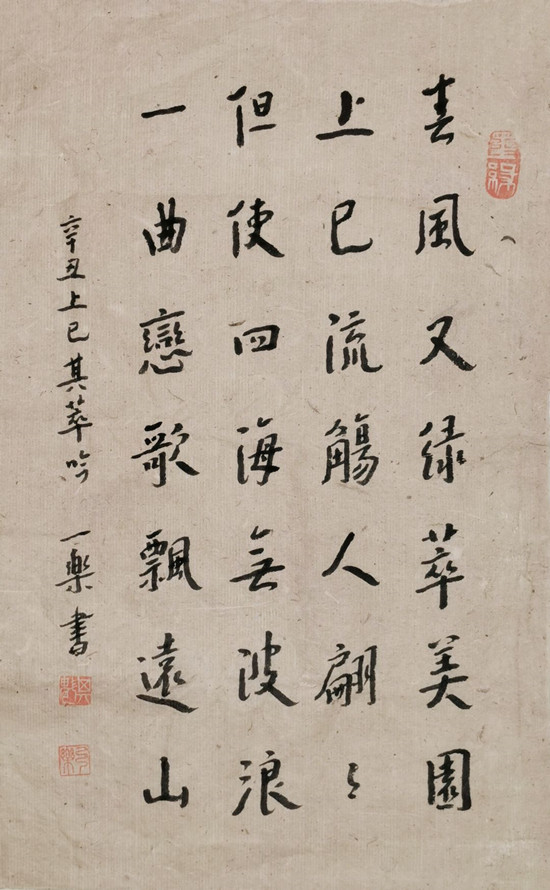 春風又绿萃美園
上巳流觴人翩〻
但使四海無波浪
一曲戀歌飄遠山
辛丑上巳其萃吟 一樂書